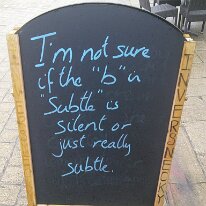 I'm not sure
if the "b" in
"Subtle" is
silent or
just really
subtle.